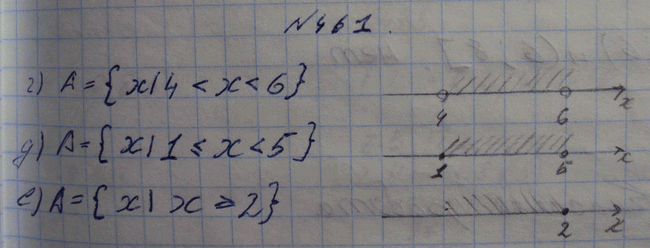 N461.
г) A = {x|4 < x < 6}
4 6 x
д) A = {x|1 ≤ x < 5}
1 5 x
е) A = {x|x ≥ 2}
2 x